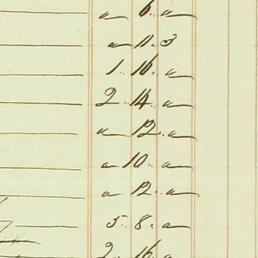 " 6 "
" 11 3
1 16 "
2 14 "
" 12 "
" 10 "
" 12 "
5 8 "
2 16